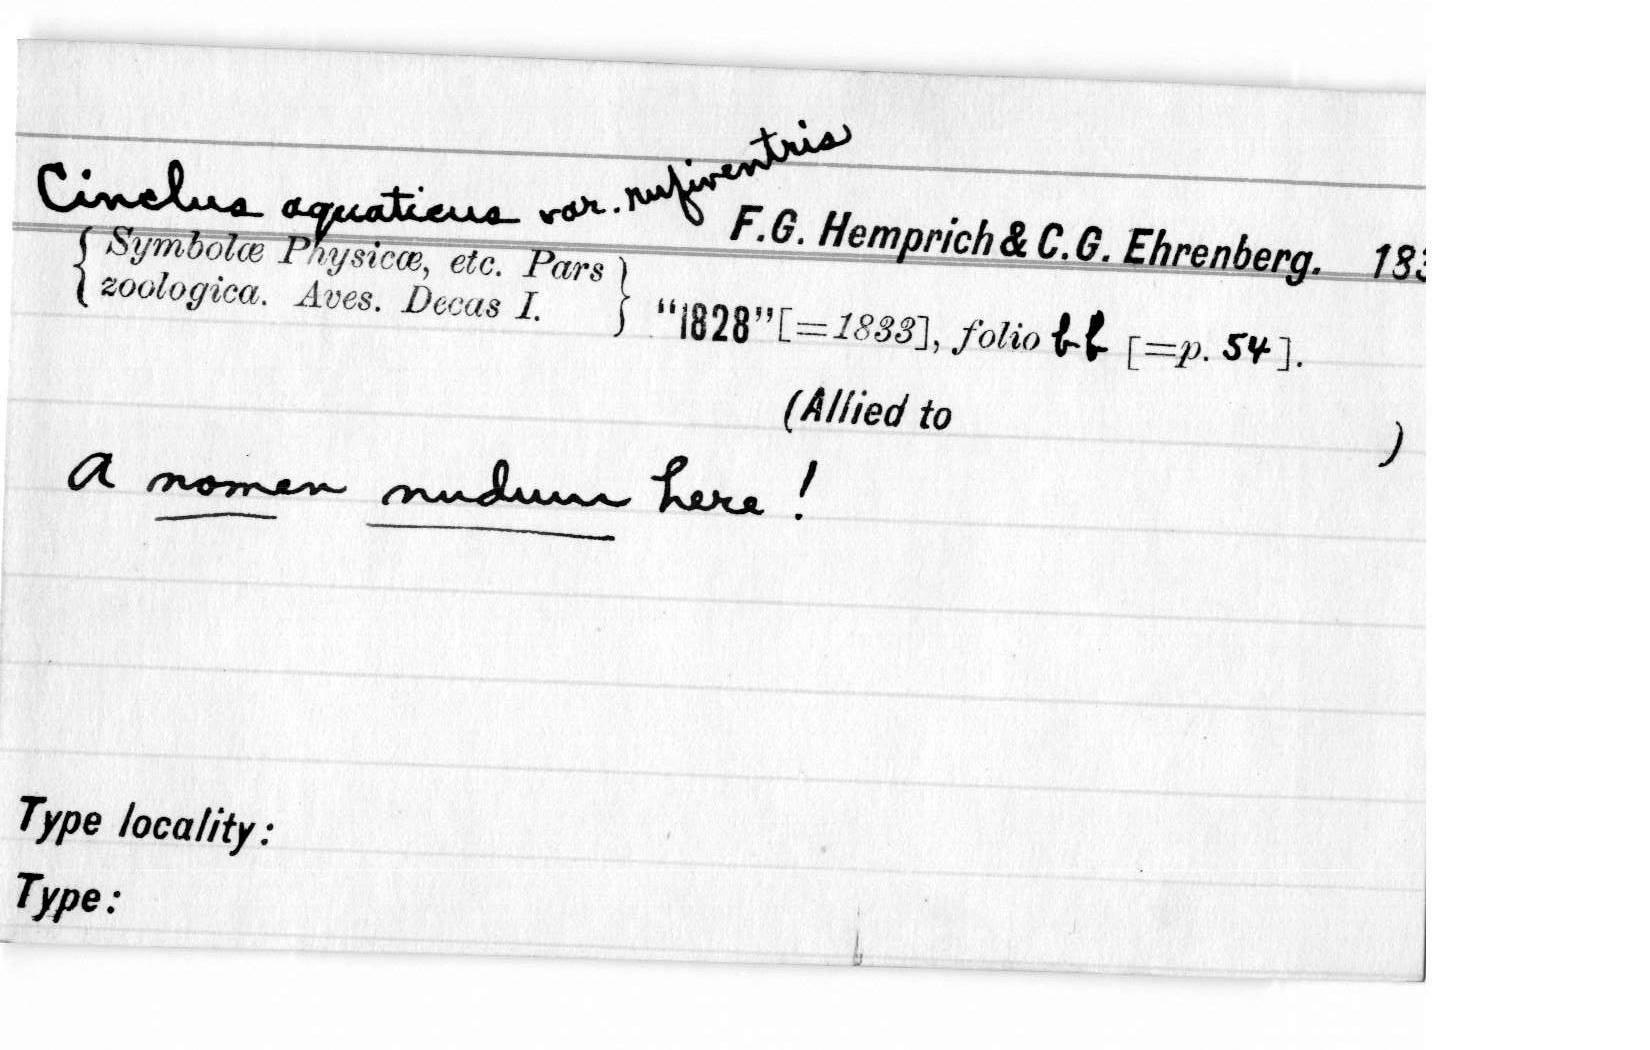 Cinclus aquaticus var. rufiventris
F.G. Hemprich & C.G. Ehrenberg. 183
{ Symbolæ Physicæ, etc. Pars
zoologica. Aves. Decas I. } "1828" [=1833], folio bb [=p. 54].
(Allied to )
A nomen nudum here!
Type locality:
Type: